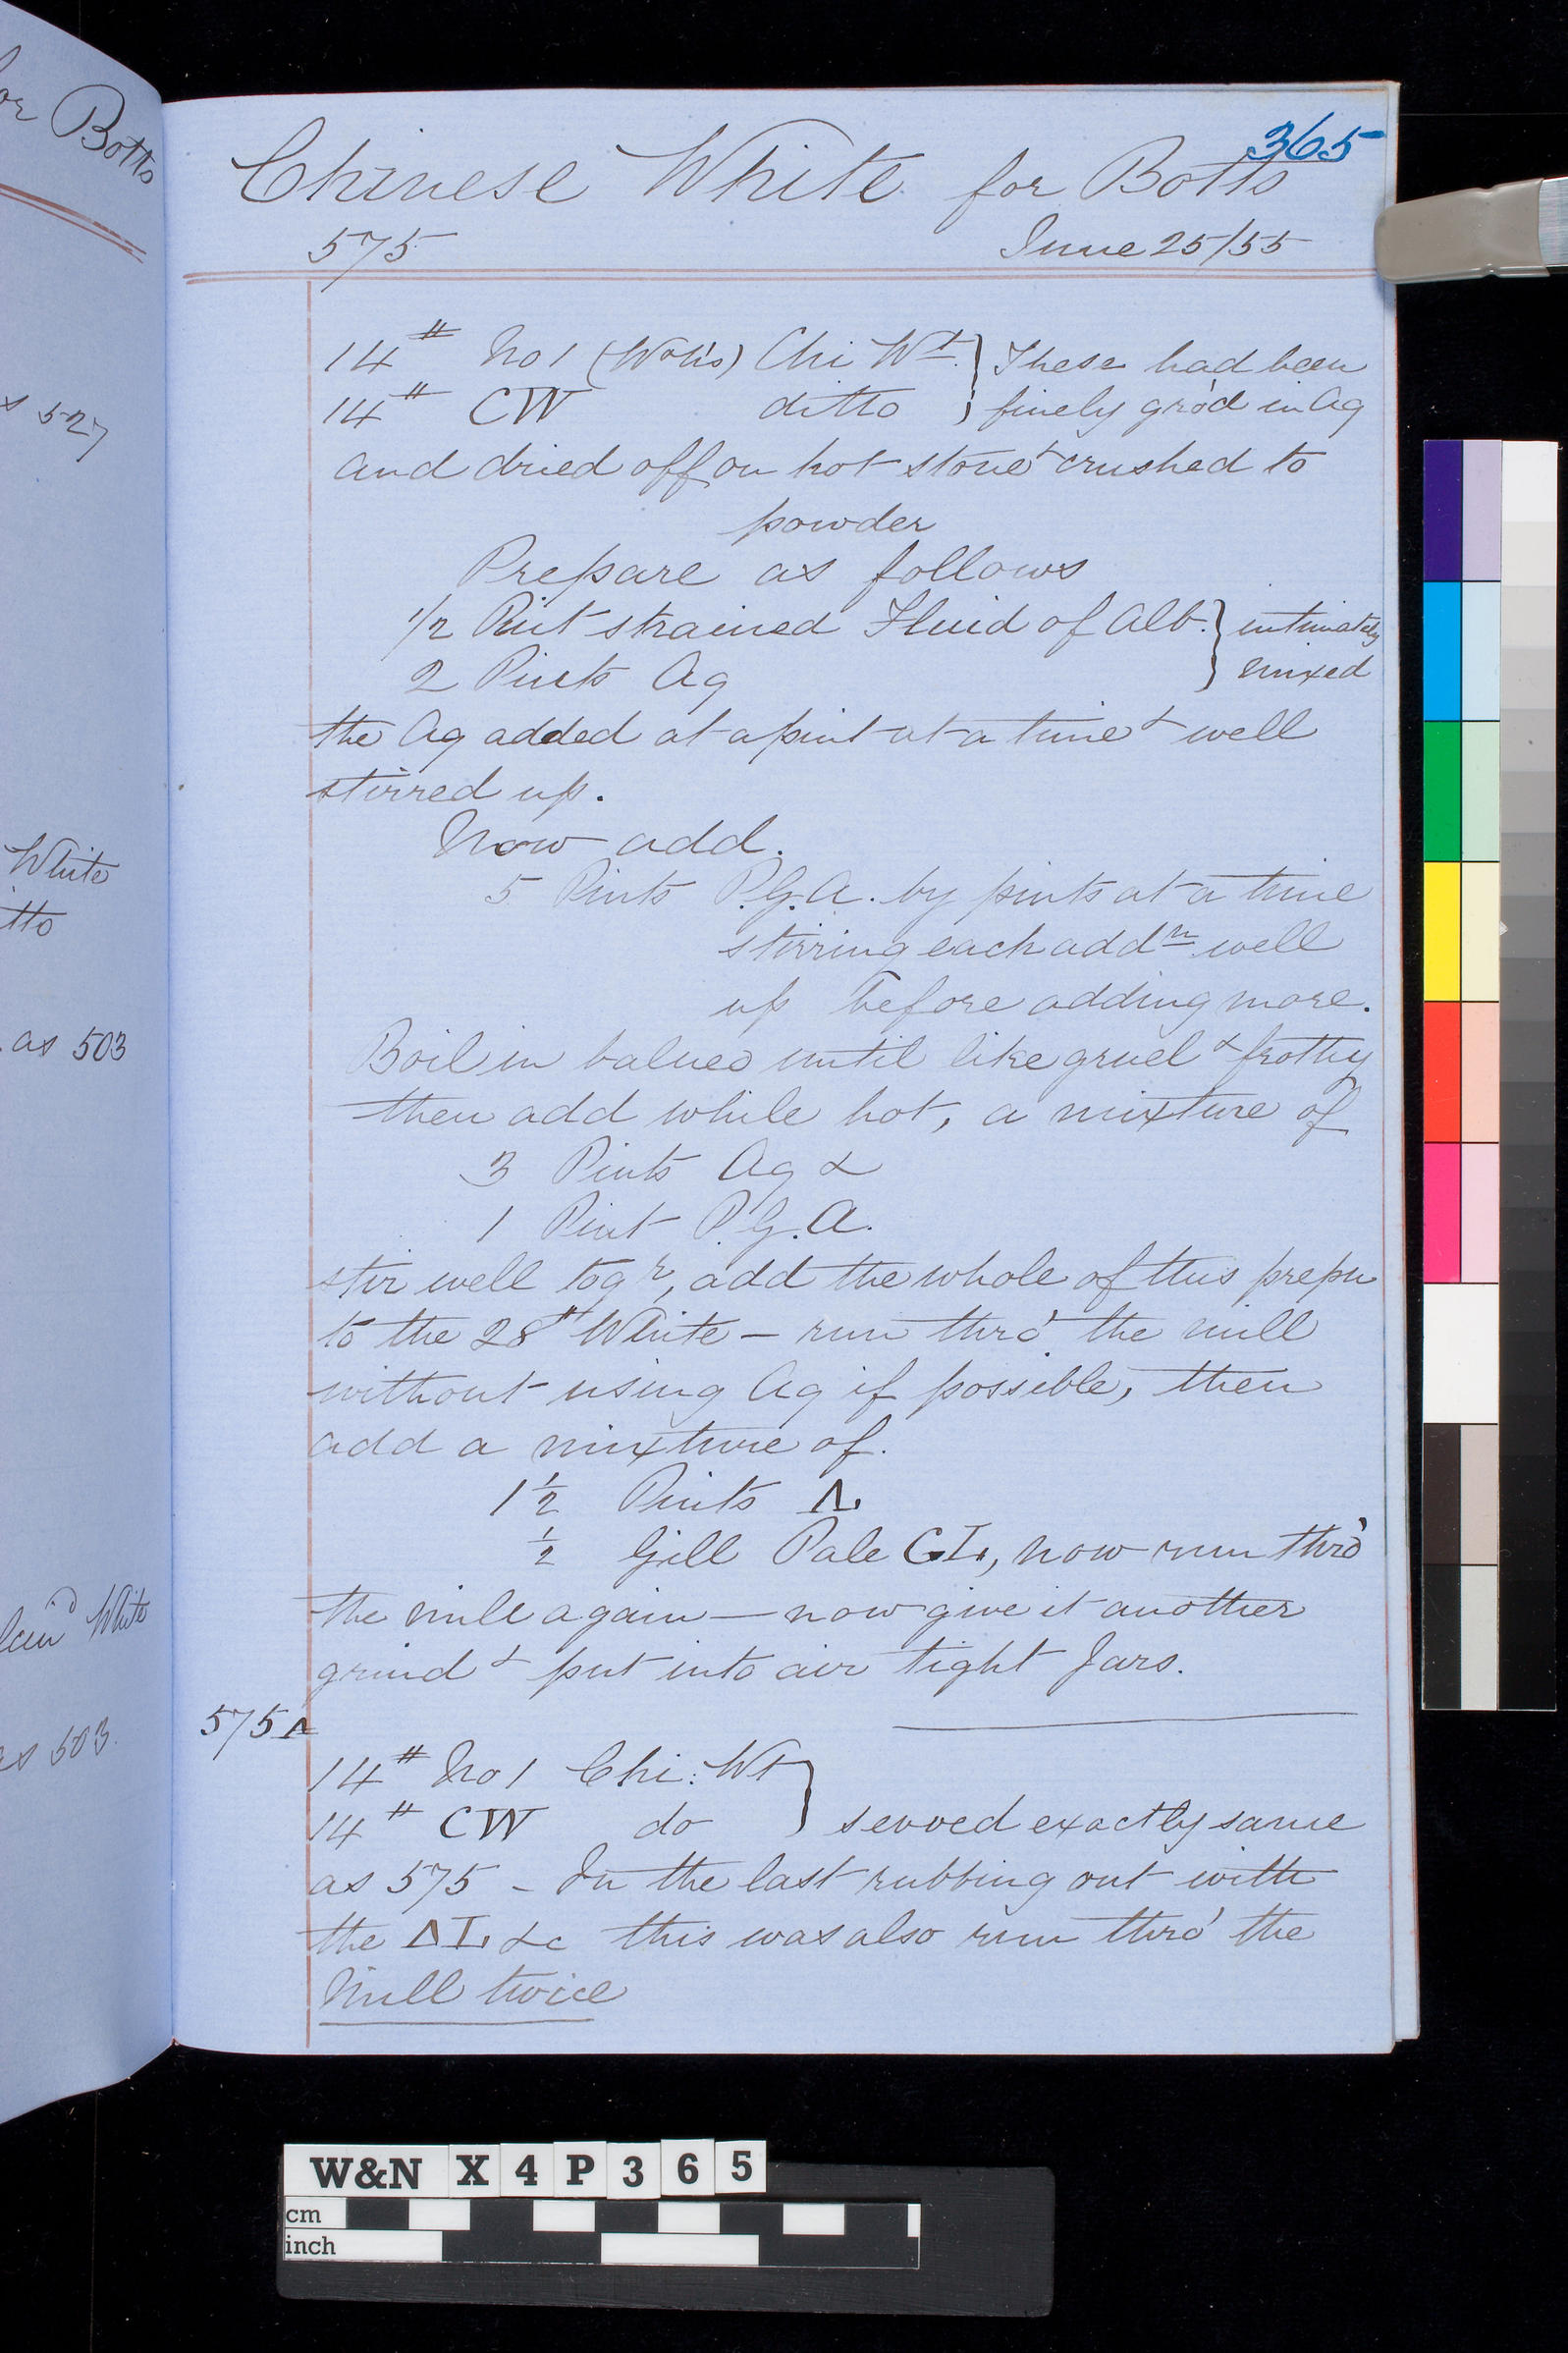 or Botts
s 527
White
tto
as 503
White
as 503.
365
Chinese White for Botts
575 June 25/55
14# No 1 (Wok's) Chi Wt. } These had been
14# CW ditto } finely gro'd in Aq
and dried off on hot stone & crushed to
powder
Prepare as follows
1/2 Pint strained Fluid of Alb. } intimately
2 Pints Aq } mixed
the Aq added at a pint at a time & well
stirred up.
Now add.
5 Pints P.G.A. by pints at a time
stirring each addn well
up before adding more.
Boil in balneo until like gruel & frothy
then add while hot, a mixture of
3 Pints Aq &
1 Pint P.G.A.
stir well togr, add the whole of this prepn
to the 28# White – run thro' the mill
without using Aq if possible, then
add a mixture of.
1 1/2 Pints Λ.
1/2 Gill Pale GL, now run thro'
the mill again — now give it another
grind & put into air tight Jars.
575 A
14# No 1 Chi: Wt }
14# CW do } served exactly same
as 575 – In the last rubbing out with
the ΔL. &c this was also run thro' the
Mill twice
W&N X 4 P 3 6 5
cm
inch